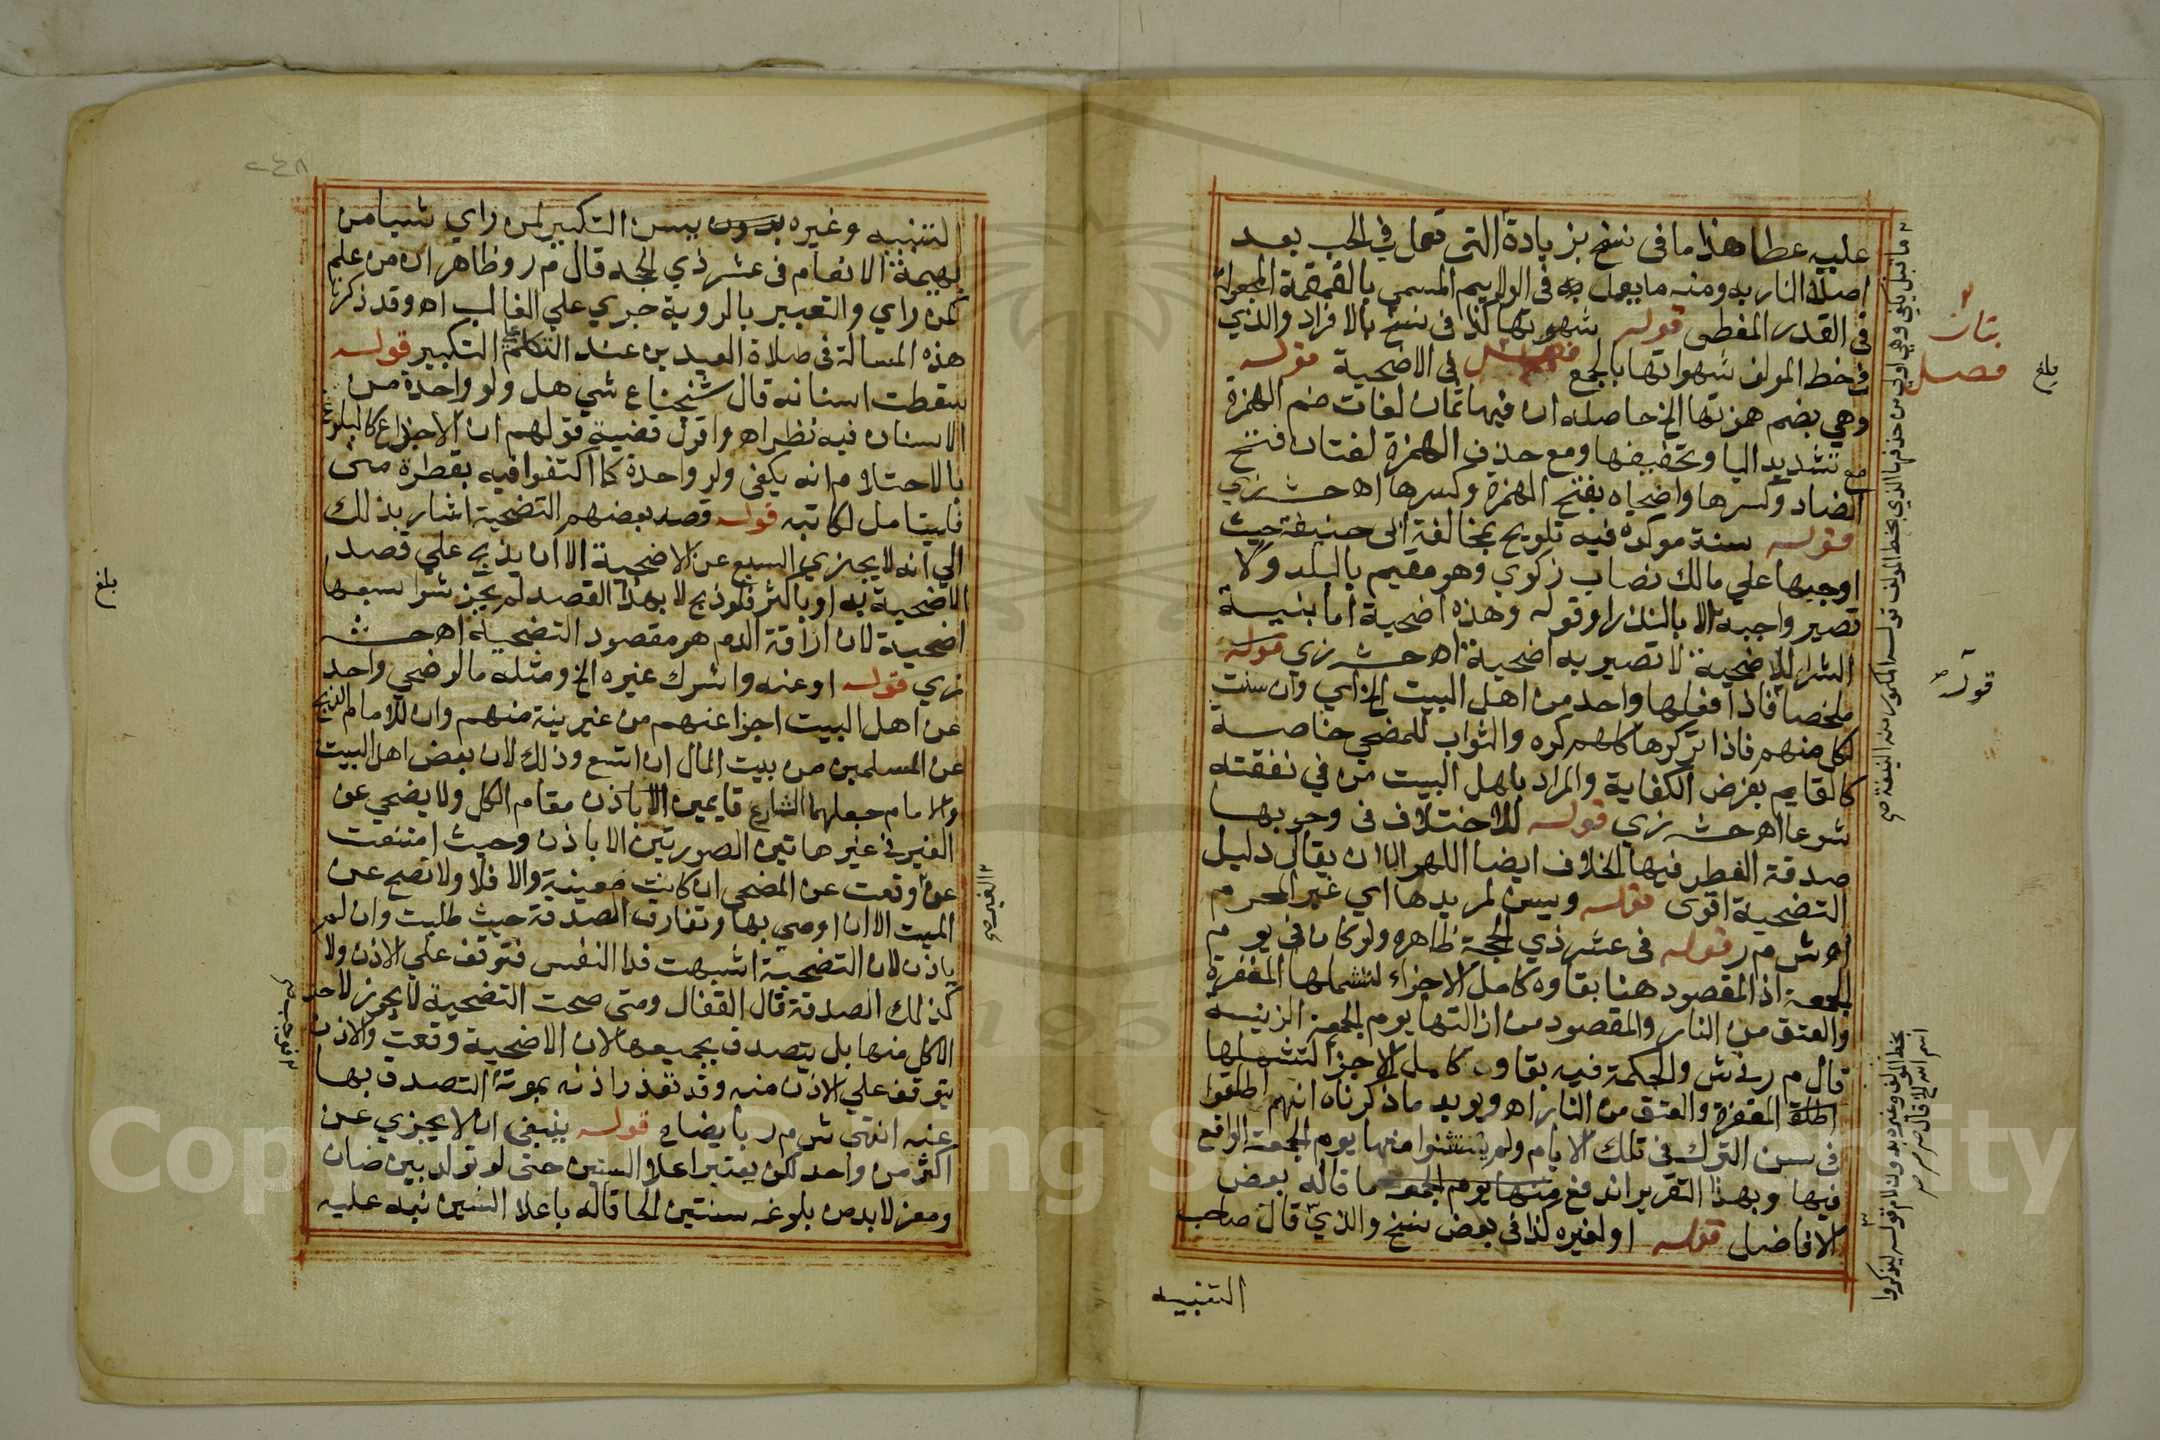 عليه عطا هذا ما في نسخ بزيادة التي تعمل في الحب بعد
اصلاة النار به ومنه ما يعمل به في الولايم المسمى بالقمقمة المجعولة
في القدر المغطى قوله شهوتها كذا في نسخ بالافراد والذي
في خط المولف شهواتها بالجمع فصل في الاضحية قوله
وهي بضم همزتها الخ حاصله ان فيها ثمان لغات ضم الهمزة
مع تشديد اليا وتخفيفها ومع حذف الهمزة لغتان فتح
الضاد وكسرها واضحاه بفتح الهمزة وكسرها اه حش زي
قوله سنة موكدة فيه تلويح بمخالفة ابى حنيفة حيث
اوجبها على مالك نصاب زكوي وهو مقيم بالبلد ولا
تصير واجبة الا بالنذر او قوله وهذه اضحية اما بنية
الشرا للاضحية لا تصير به اضحية اه حش زي قوله
ملخصا فاذا فعلها واحد من اهل البيت الخ اي وان سنت
لكل منهم فاذا تركرها كلهم كره والثواب للمضحي خاصة
كالقايم بفرض الكفاية والمراد باهل البيت من في نفقته
شرعا اه حش زي قوله للاختلاف في وجوبها
صدقة الفطر فيها الخلاف ايضا اللهم الا ان يقال دليل
التضحية اقوى قوله ويسن لمريدها اي غير المحرم
اه ش م ر قوله في عشر ذي الحجة ظاهره ولو كان في يوم
الجمعة اذ المقصود هنا بقاوه كامل الاجزاء لتشملها المغفرة
والعتق من النار والمقصود من ازالتها يوم الجمعة الزينة
قال م ر في ش والحكمة فيه بقاوه كامل الاجزا لتشملها
المغفرة والعتق من النار اه ويويد ما ذكرناه انهم اطلقوا
في سن الترك في تلك الايام ولم يستثنوا منها يوم الجمعة الواقع
فيها وبهذا التقرير اندفع منها يوم الجمعة ما قاله بعض
الافاضل قوله او لغيره كذا في بعض نسخ والذي قال صاحب
التنبيه
فصل
بلغ
قوله
التنبيه وغيره بدون يسن التكبير لمن راي شيا من
بهيمة الانعام في عشر ذي الحجة قال م ر وظاهر ان من علم
كمن راي والتعبير بالروية جري علي الغالب اه وقد ذكرنا
هذه المسالة في صلاة العيدين عند التكبير قوله
سقطت اسنانه قال شيخنا ع ش هل ولو واحدة من
الاسنان فيه نظر اه واقول قضية قولهم ان الاجذاع كالبلوغ
بالاحتلام انه يكفي ولو واحدة كما اكتفوا فيه بقطرة مني
فليتامل لكاتبه قوله قصد بعضهم التضحية اشار بذلك
الي انه لا يجزي السبع عن الاضحية الا ان يذبح علي قصد
الاضحية به او باكثر فلو ذبح لا بهذا القصد لم يجز شرا سبعها
اضحية لان اراقة الدم هو مقصود التضحية اه حش
زي قوله او عنه واشرك غيره الخ ومثله ما لو ضحي واحد
عن اهل البيت اجزا عنهم من غير نية منهم وان للامام الذبح
عن المسلمين من بيت المال ان اتسع وذلك لان بعض اهل البيت
والامام جعلهما الشارع قايمين الا باذن مقام الكل ولا يضحي عن
الغير في غير هاتين الصورتين الا باذن وحيث امتنعت
عن وقعت عن المضحي ان كانت معينة والا فلا ولا تصح عن
الميت الا ان اوصي بها وتفارق الصدقة حيث طلبت وان لم
ياذن لان التضحية اشبهت فدا النفس فتوقف علي الاذن ولا
كذلك الصدقة قال القفال ومتي صحت التضحية لا يجوز لاحد
الاكل منها بل يتصدق بجميعها لان الاضحية وقعت والاذن
يتوقف علي الاذن منه وقد تعذر اذنه بموته التصدق بها
عنه انتهى ش م ر بايضاح قوله ينبغي ان لا يجزي عن
اكثر من واحد لكن يعتبر اعلا السنين حتى لو تولد بين ضان
ومعز لا بد من بلوغه سنتين الحاقا له باعلا السنين نبه عليه
بلغ